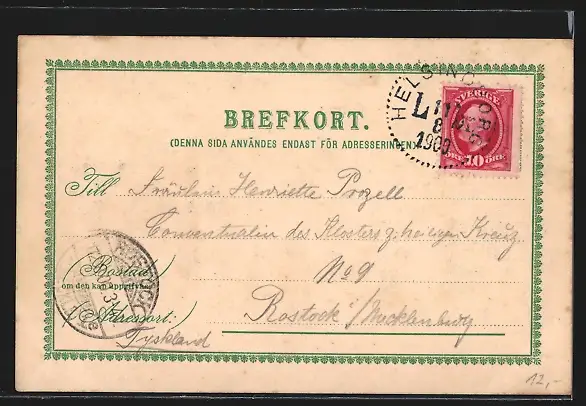 BREFKORT.
(DENNA SIDA ANVÄNDES ENDAST FÖR ADRESSERINGEN)
HELSINGBORG
L 17
1900
SVERIGE
10 ÖRE
Till Fräulein Henriette Prozell
Conventualin des Klosters z. heiligen Kreuz
(Bostad)
om den kan uppgifvas
No 9
(Adressort:) Rostock i/Mecklenburg
Tyskland
ROSTOCK
12,-